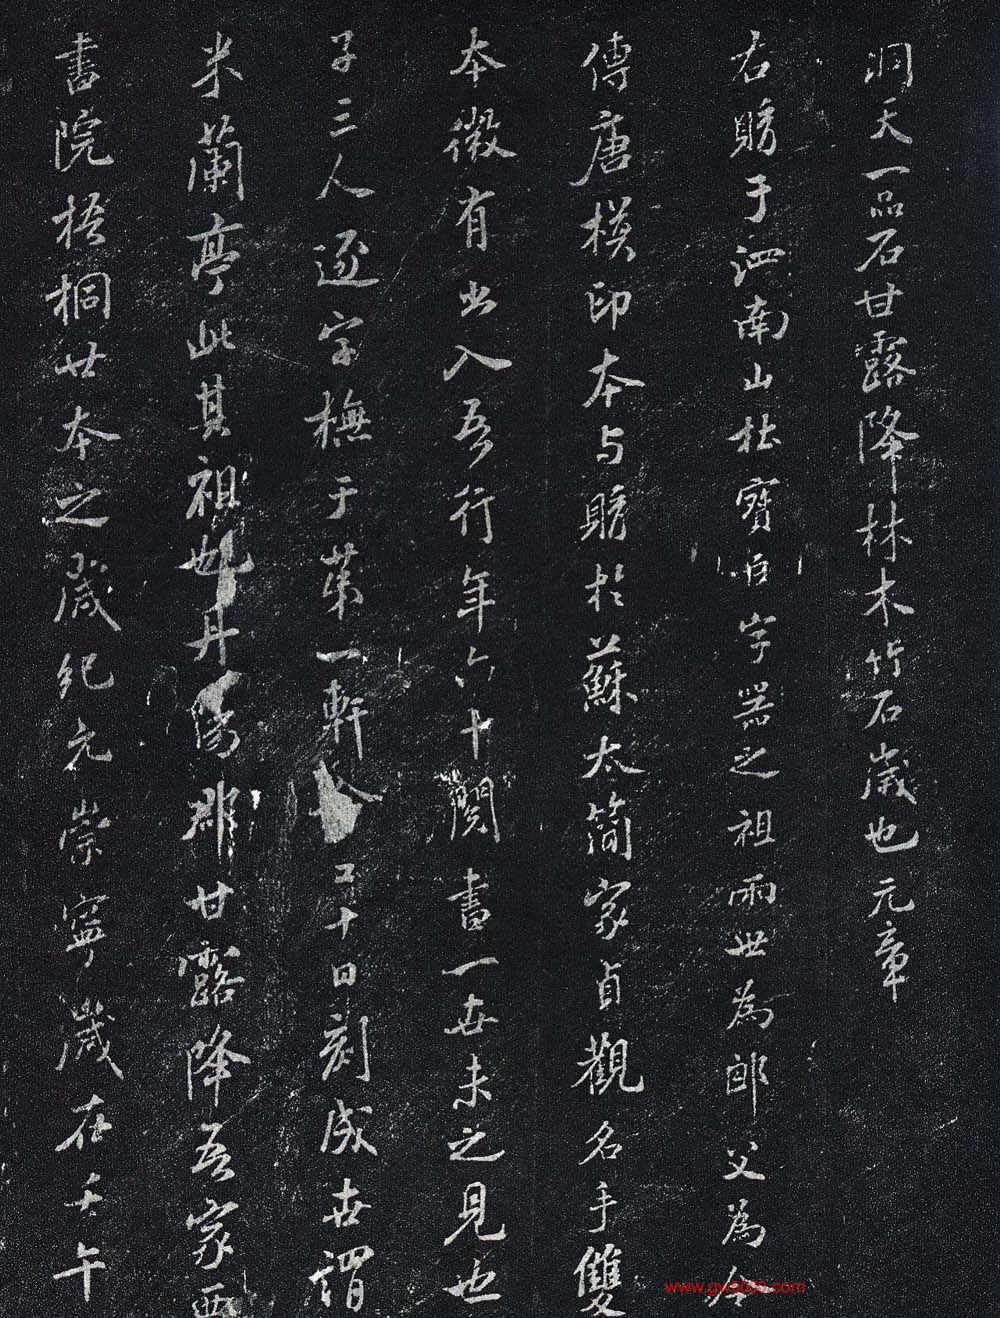 洞天一品石甘露降林木竹石歲也元章
右購于泗南山杜寶臣字器之祖兩世為郎父為
傳唐模印本与購於蘇太簡家貞觀名手雙
本微有出入吾行年六十閱書一世未之見也
子三人逐字橅于第一軒 工十日刻成世謂
米蘭亭此其祖也丹陽郡甘露降吾家西
書院梧桐廿本之歲紀元崇寧歲在壬午
www.gw5000.com